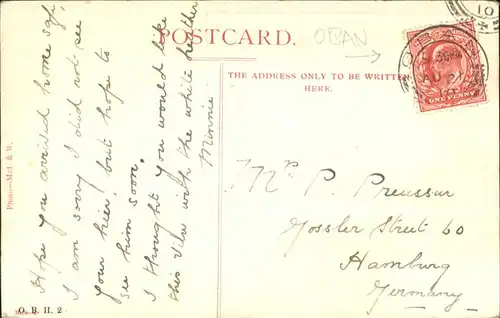 POSTCARD.
OBAN
THE ADDRESS ONLY TO BE WRITTEN
HERE.
Hope you arrived home safe,
I am sorry I did not see
your hier! but hope to
see him soon.
I thought you would like
this view with the white heather
Minnie
Mr P. Preussur
Gossler Street 60
Hamburg
Germany
OBAN
AU 21
10
ONE PENNY
10
Photo—McI. & W.
O. B. H. 2